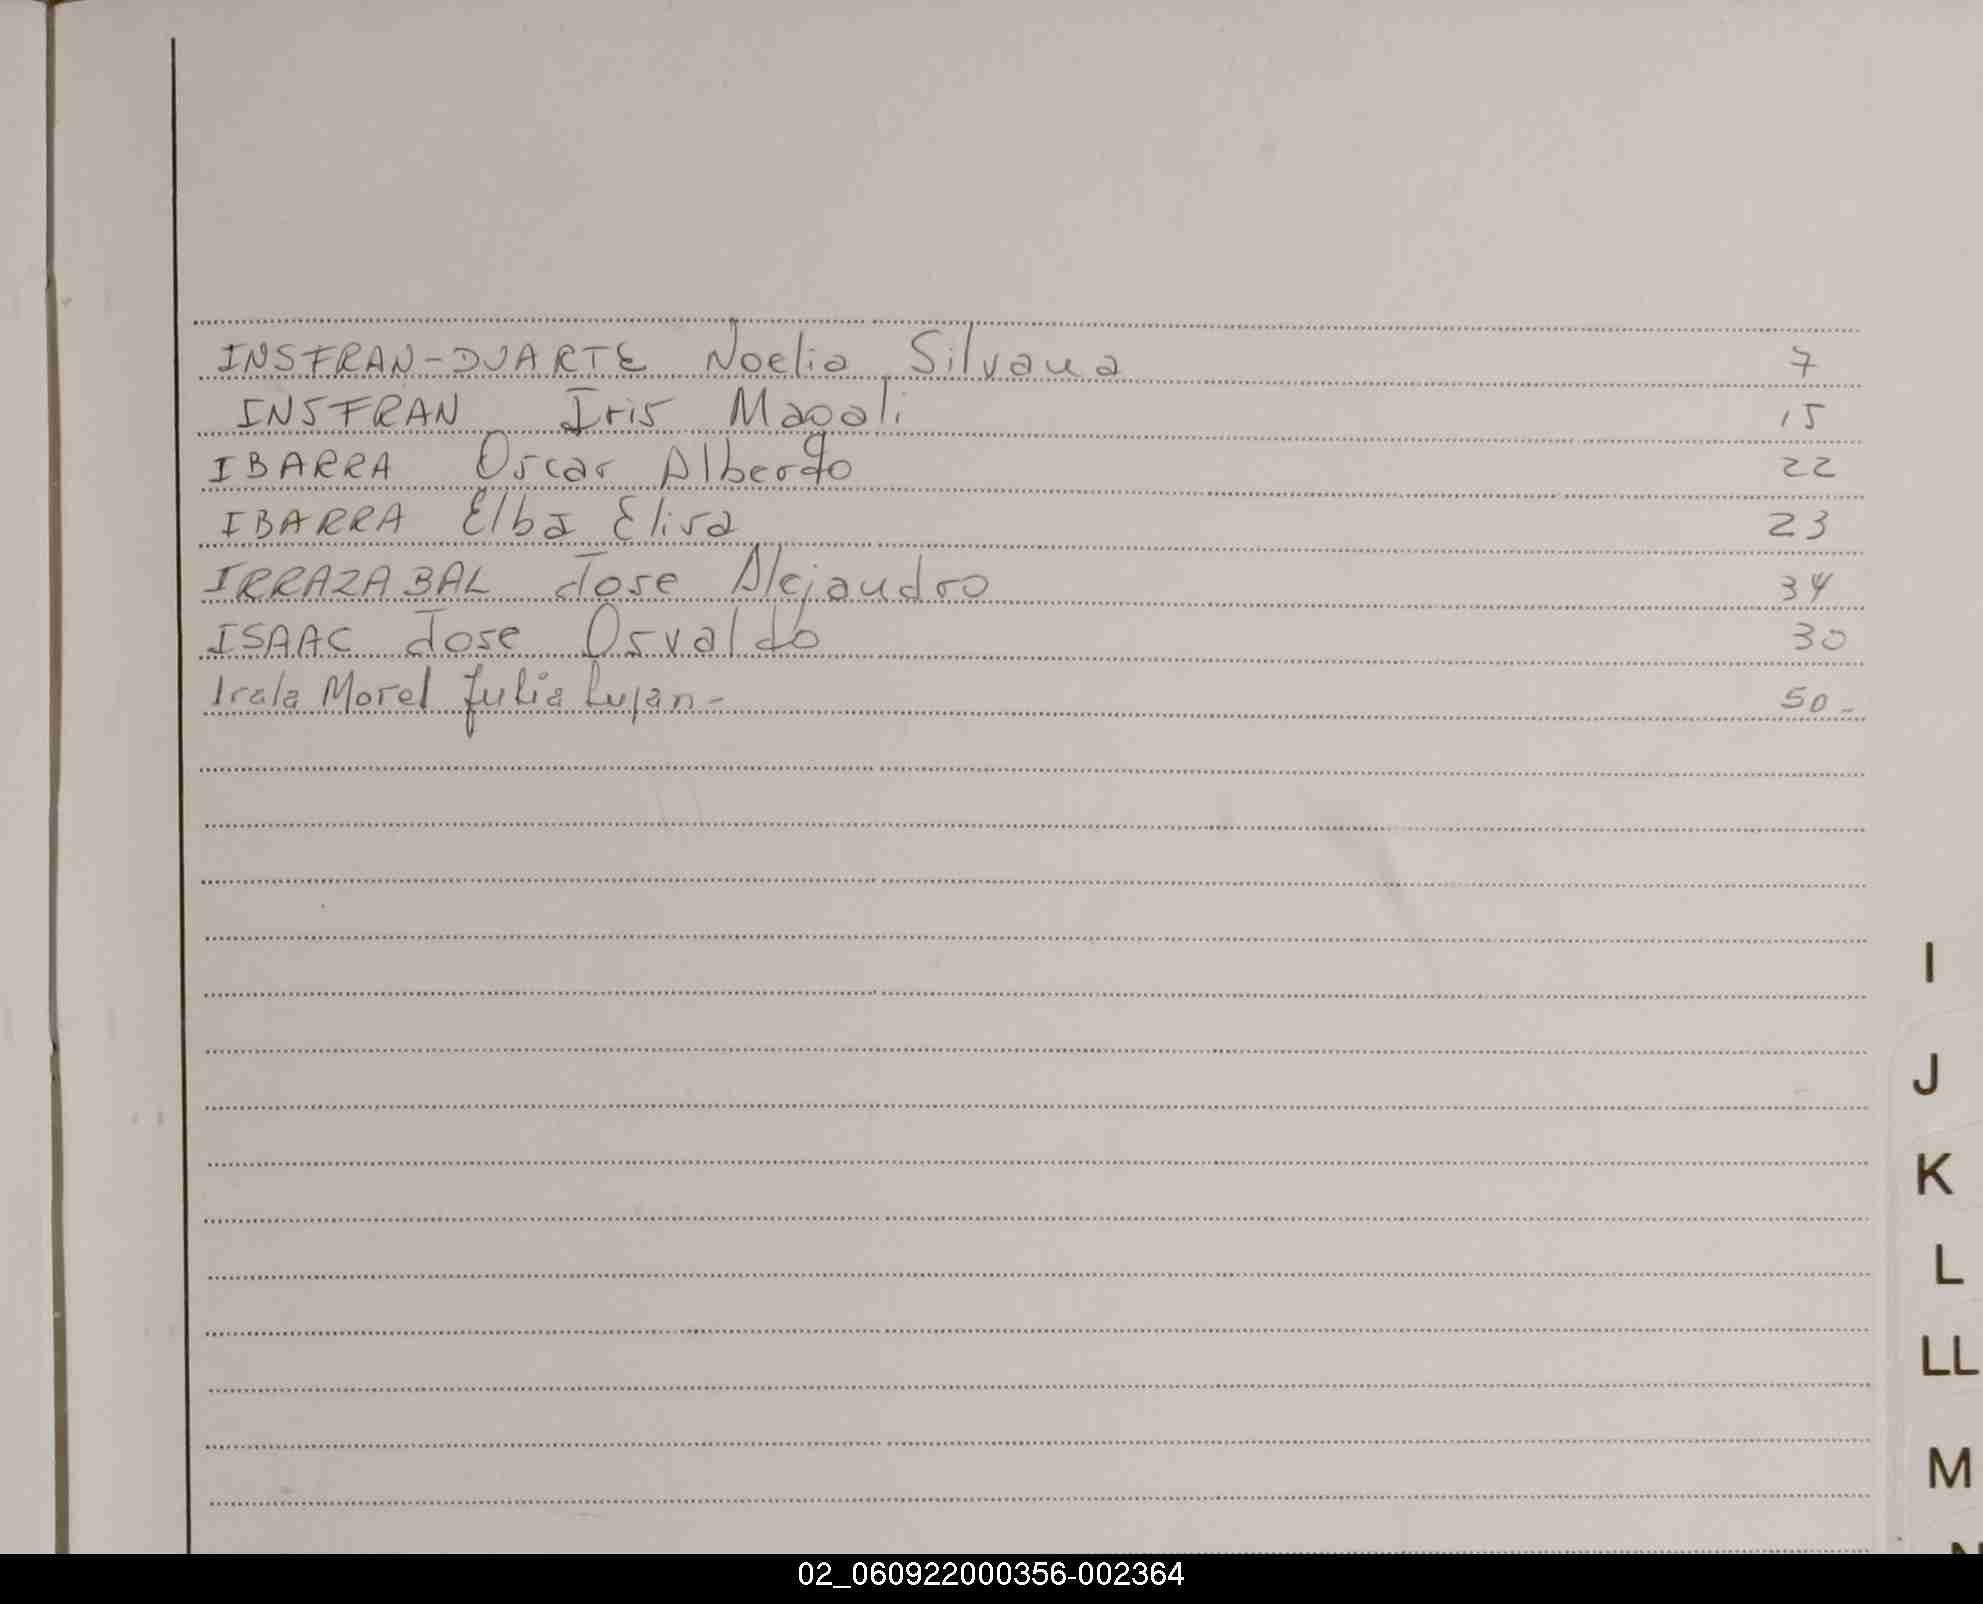 INSFRAN-DUARTE Noelia Silvana 7
INSFRAN Iris Magali 15
IBARRA Oscar Alberto 22
IBARRA Elba Elisa 23
IRRAZABAL Jose Alejandro 34
ISAAC Jose Osvaldo 30
Irala Morel Julia Lujan- 50-
I
J
K
L
LL
M
N
02_060922000356-002364